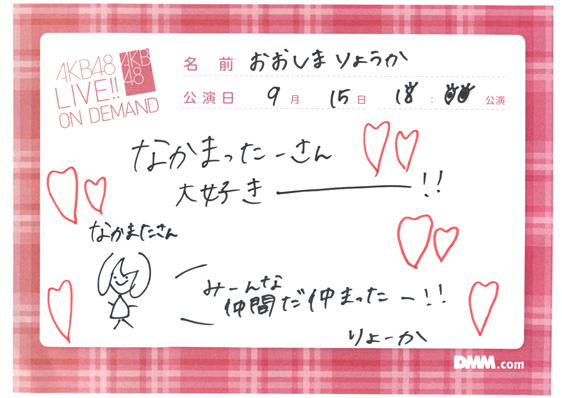 AKB48
LIVE!!
ON DEMAND
AKB
48
名前 おおしまりょうか
公演日 9月 15日 18:00 公演
なかまったーさん
大好きー!!
なかまたさん
みーんな
仲間だ仲まったー!!
りょーか
DMM.com